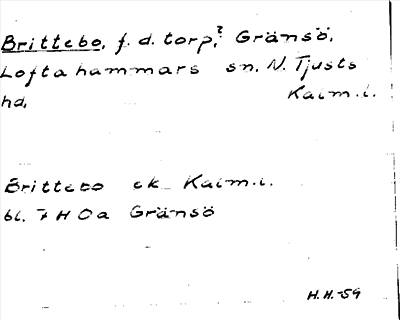 Brittebo, f. d. torp,? Gränsö,
Loftahammars sn. N. Tjusts
hd, Kalm. l.
Brittebo ek Kalm. l.
bl. 7 H 0a Gränsö
H. H. -59